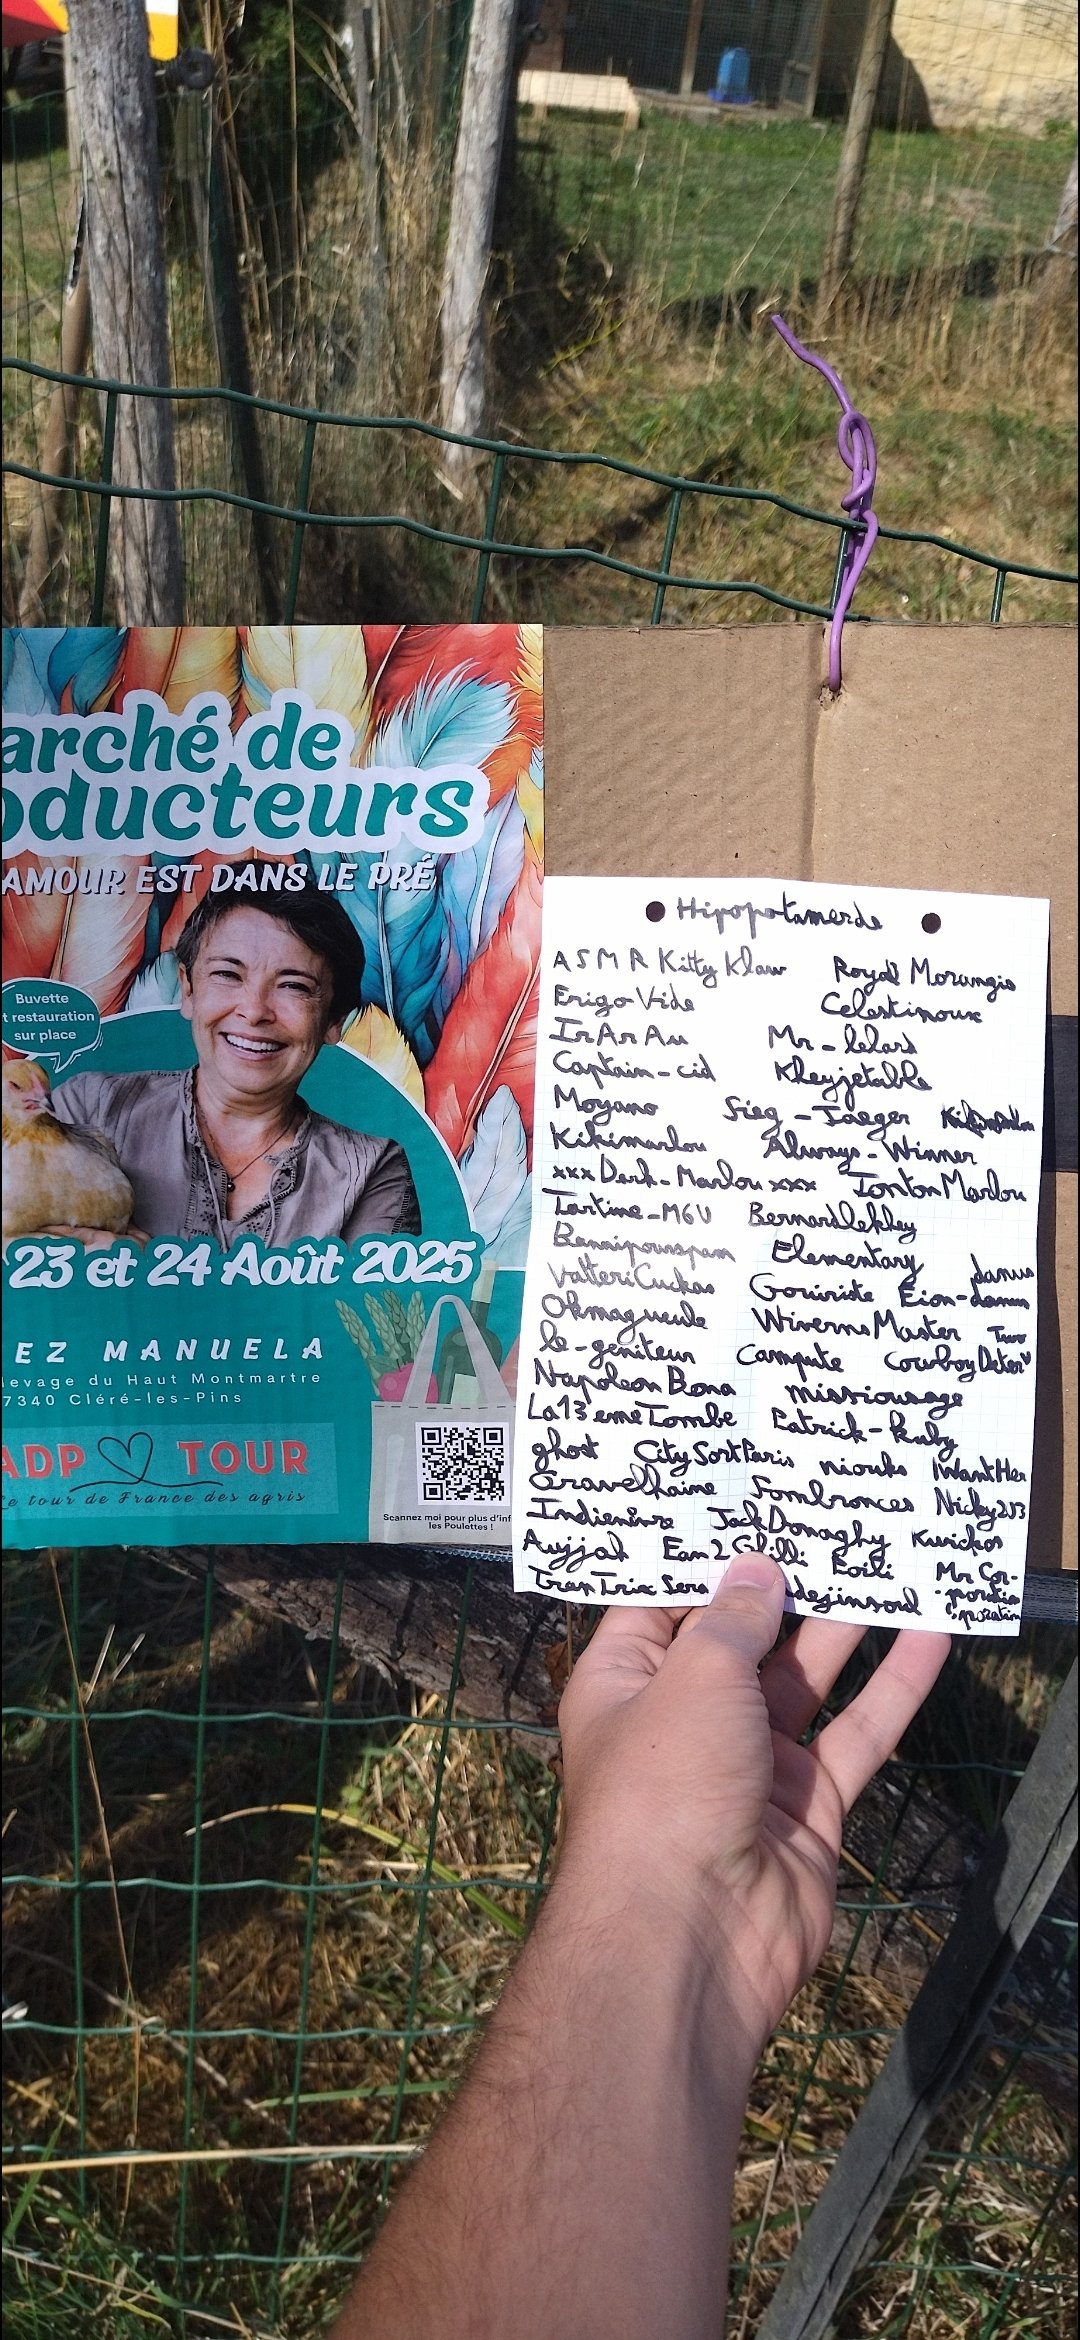 arché de
oducteurs
AMOUR EST DANS LE PRÉ
Buvette
t restauration
sur place
23 et 24 Août 2025
EZ MANUELA
levage du Haut Montmartre
7340 Cléré-les-Pins
ADP TOUR
Le tour de France des agris
Scannez moi pour plus d'inf
les Poulettes !
Hipopotamerde
ASMR Kitty Klaw Royal Morangis
Erigo Vide Celestinoux
IrArAu Mr-lelard
Captain-cid Kheyjetable
Moyano Sieg-Jaeger
Kikimarlou Always-Winner
xxxDark-Marlouxxx TontonMarlou
Tartine-MGV Bernardlekhey
Bannipourspam Elementary danus
ValteriCuckas Gouiriste Eion-danus
Okmagueule WivernsMaster
le-geniteur Campute CowboyDeter
Napoleon Bona missiousage
La13emeTombe Patrick-Ruby
ghost CitySortParis niouks IWantHer
Gravelkaime Sombronces Nicky213
Indieninre JackDonaghy Kwickos
Aujjah Eam2Ghilli Eoili Mr Cor-
TrenTrix Sera dejinsoul poration